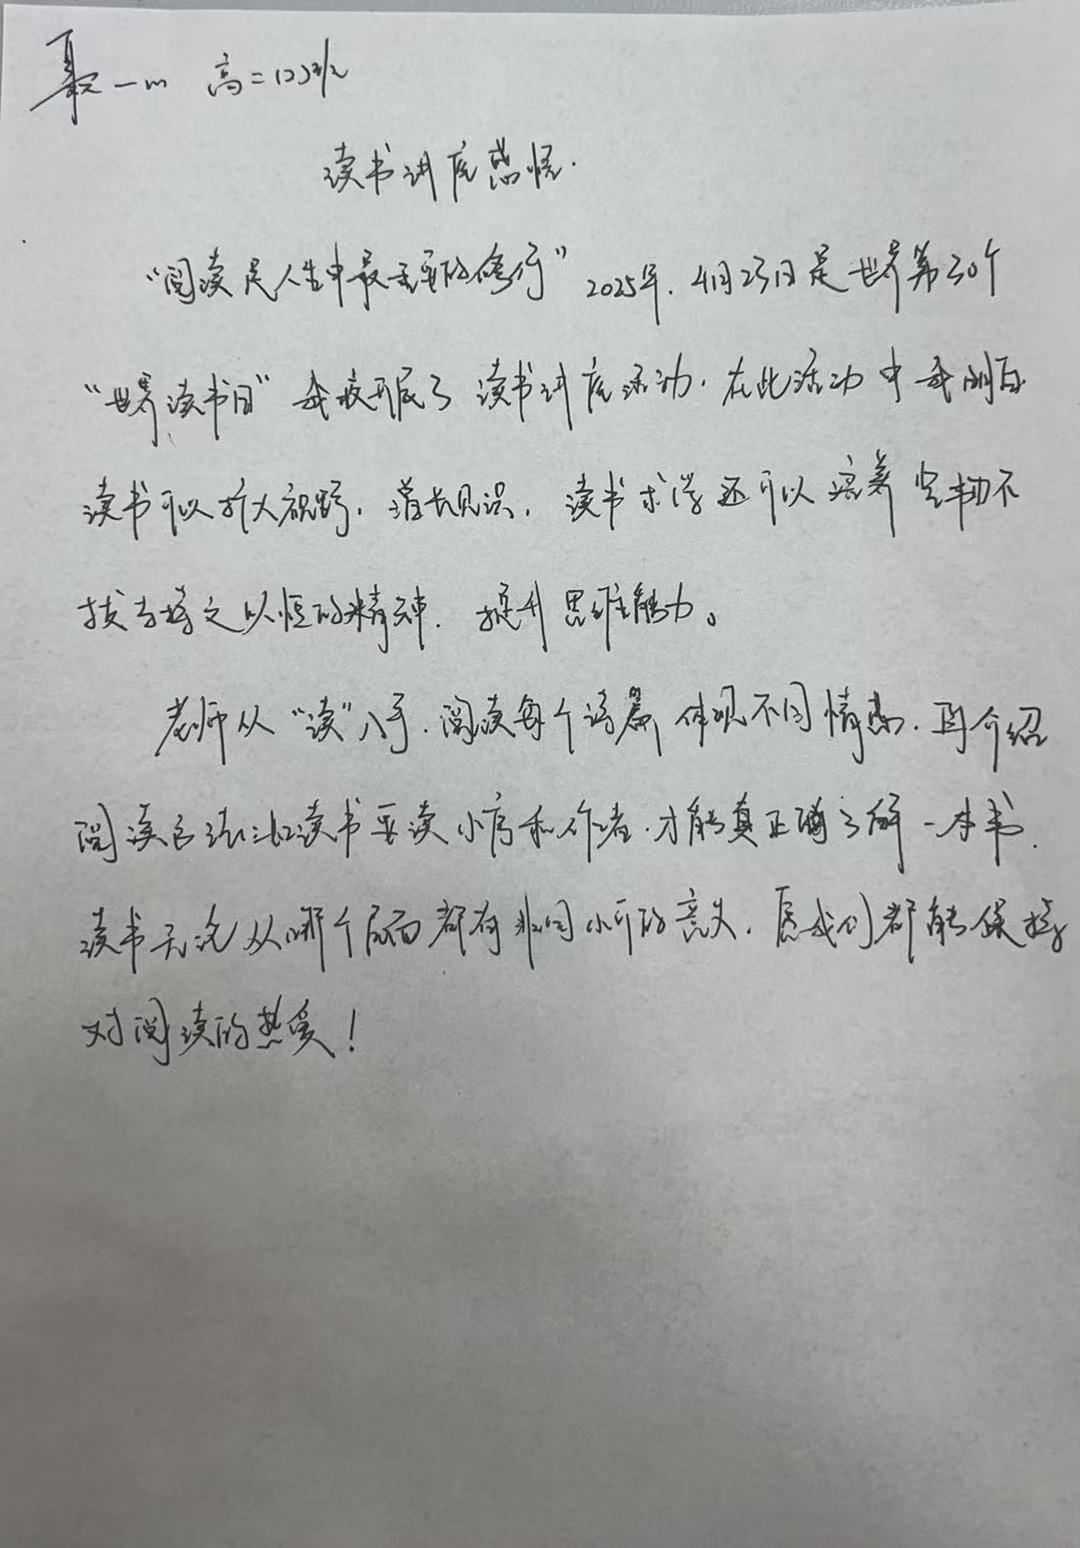 聂一m 高二(2)班
读书讲座感悟.
“阅读是人生中最重要的修行”2025年.4月23日是世界第30个
“世界读书日”我校开展了读书讲座活动.在此活动中我明白
读书可以扩大视野,增长见识,读书求学还可以培养坚韧不
拔与持之以恒的精神.提升思维能力。
老师从“读”入手.阅读每个诗篇体现不同情感.再介绍
阅读方法:让读书要读小序和作者.才能真正了解一本书.
读书无论从哪个层面都有非同小可的意义.愿我们都能保持
对阅读的热爱!